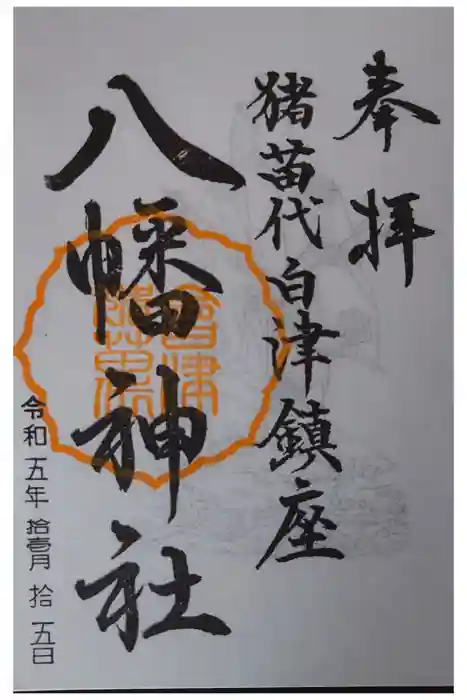 奉拝
猪苗代白津鎮座
八幡神社
令和五年拾壹月拾五日